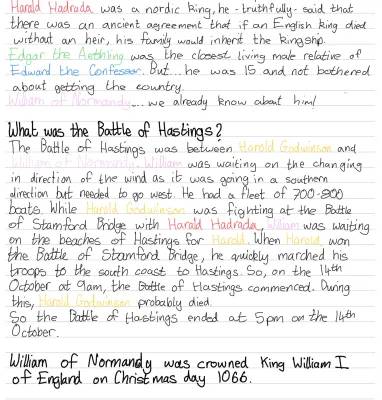 Harald Hadrada was a nordic king, he - truthfully - said that
there was an ancient agreement that if an English king died
without an heir, his family would inherit the kingship.
Edgar the Aethling was the closest living male relative of
Edward the Confessor. But... he was 15 and not bothered
about getting the country.
William of Normandy .... we already know about him!
What was the Battle of Hastings?
The Battle of Hastings was between Harold Godwinson and
William of Normandy. William was waiting on the changing
in direction of the wind as it was going in a southern
direction but needed to go west. He had a fleet of 700-800
boats. While Harold Godwinson was fighting at the Battle
of Stamford Bridge with Harald Hadrada, William was waiting
on the beaches of Hastings for Harold. When Harold won
the Battle of Stamford Bridge, he quickly marched his
troops to the south coast to Hastings. So, on the 14th
October at 9am, the Battle of Hastings commenced. During
this, Harold Godwinson probably died.
So the Battle of Hastings ended at 5pm on the 14th
October.
William of Normandy was crowned King William I
of England on Christmas day 1066.